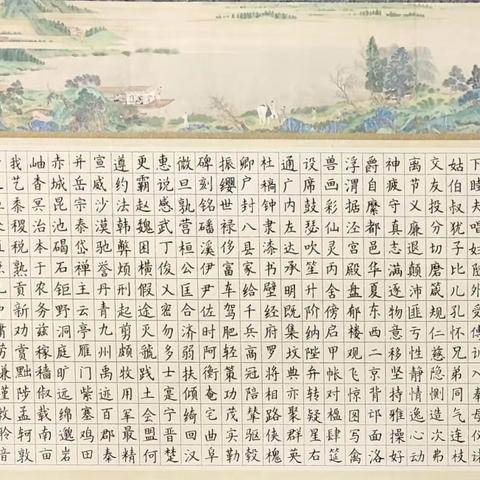 下睦夫唱妇随外受傅训入奉母仪诸
姑伯叔犹子比儿孔怀兄弟同气连枝
交友投分切磨箴规仁慈隐恻造次弗
离节义廉退颠沛匪亏性静情逸心动
神疲守真志满逐物意移坚持雅操好
爵自縻都邑华夏东西二京背邙面洛
浮渭据泾宫殿盘郁楼观飞惊图写禽
兽画彩仙灵丙舍傍启甲帐对楹肆筵
设席鼓瑟吹笙升阶纳陛弁转疑星右
通广内左达承明既集坟典亦聚群英
杜稿钟隶漆书壁经府罗将相路侠槐
卿户封八县家给千兵高冠陪辇驱毂
振缨世禄侈富车驾肥轻策功茂实勒
碑刻铭磻溪伊尹佐时阿衡奄宅曲阜
微旦孰营桓公匡合济弱扶倾绮回汉
惠说感武丁俊乂密勿多士寔宁晋楚
更霸赵魏困横假途灭虢践土会盟何
遵约法韩弊烦刑起翦颇牧用军最精
宣威沙漠驰誉丹青九州禹迹百郡秦
并岳宗泰岱禅主云亭雁门紫塞鸡田
赤城昆池碣石钜野洞庭旷远绵邈岩
岫杳冥治本于农务兹稼穑俶载南亩
我艺黍稷税熟贡新劝赏黜陟孟轲敦